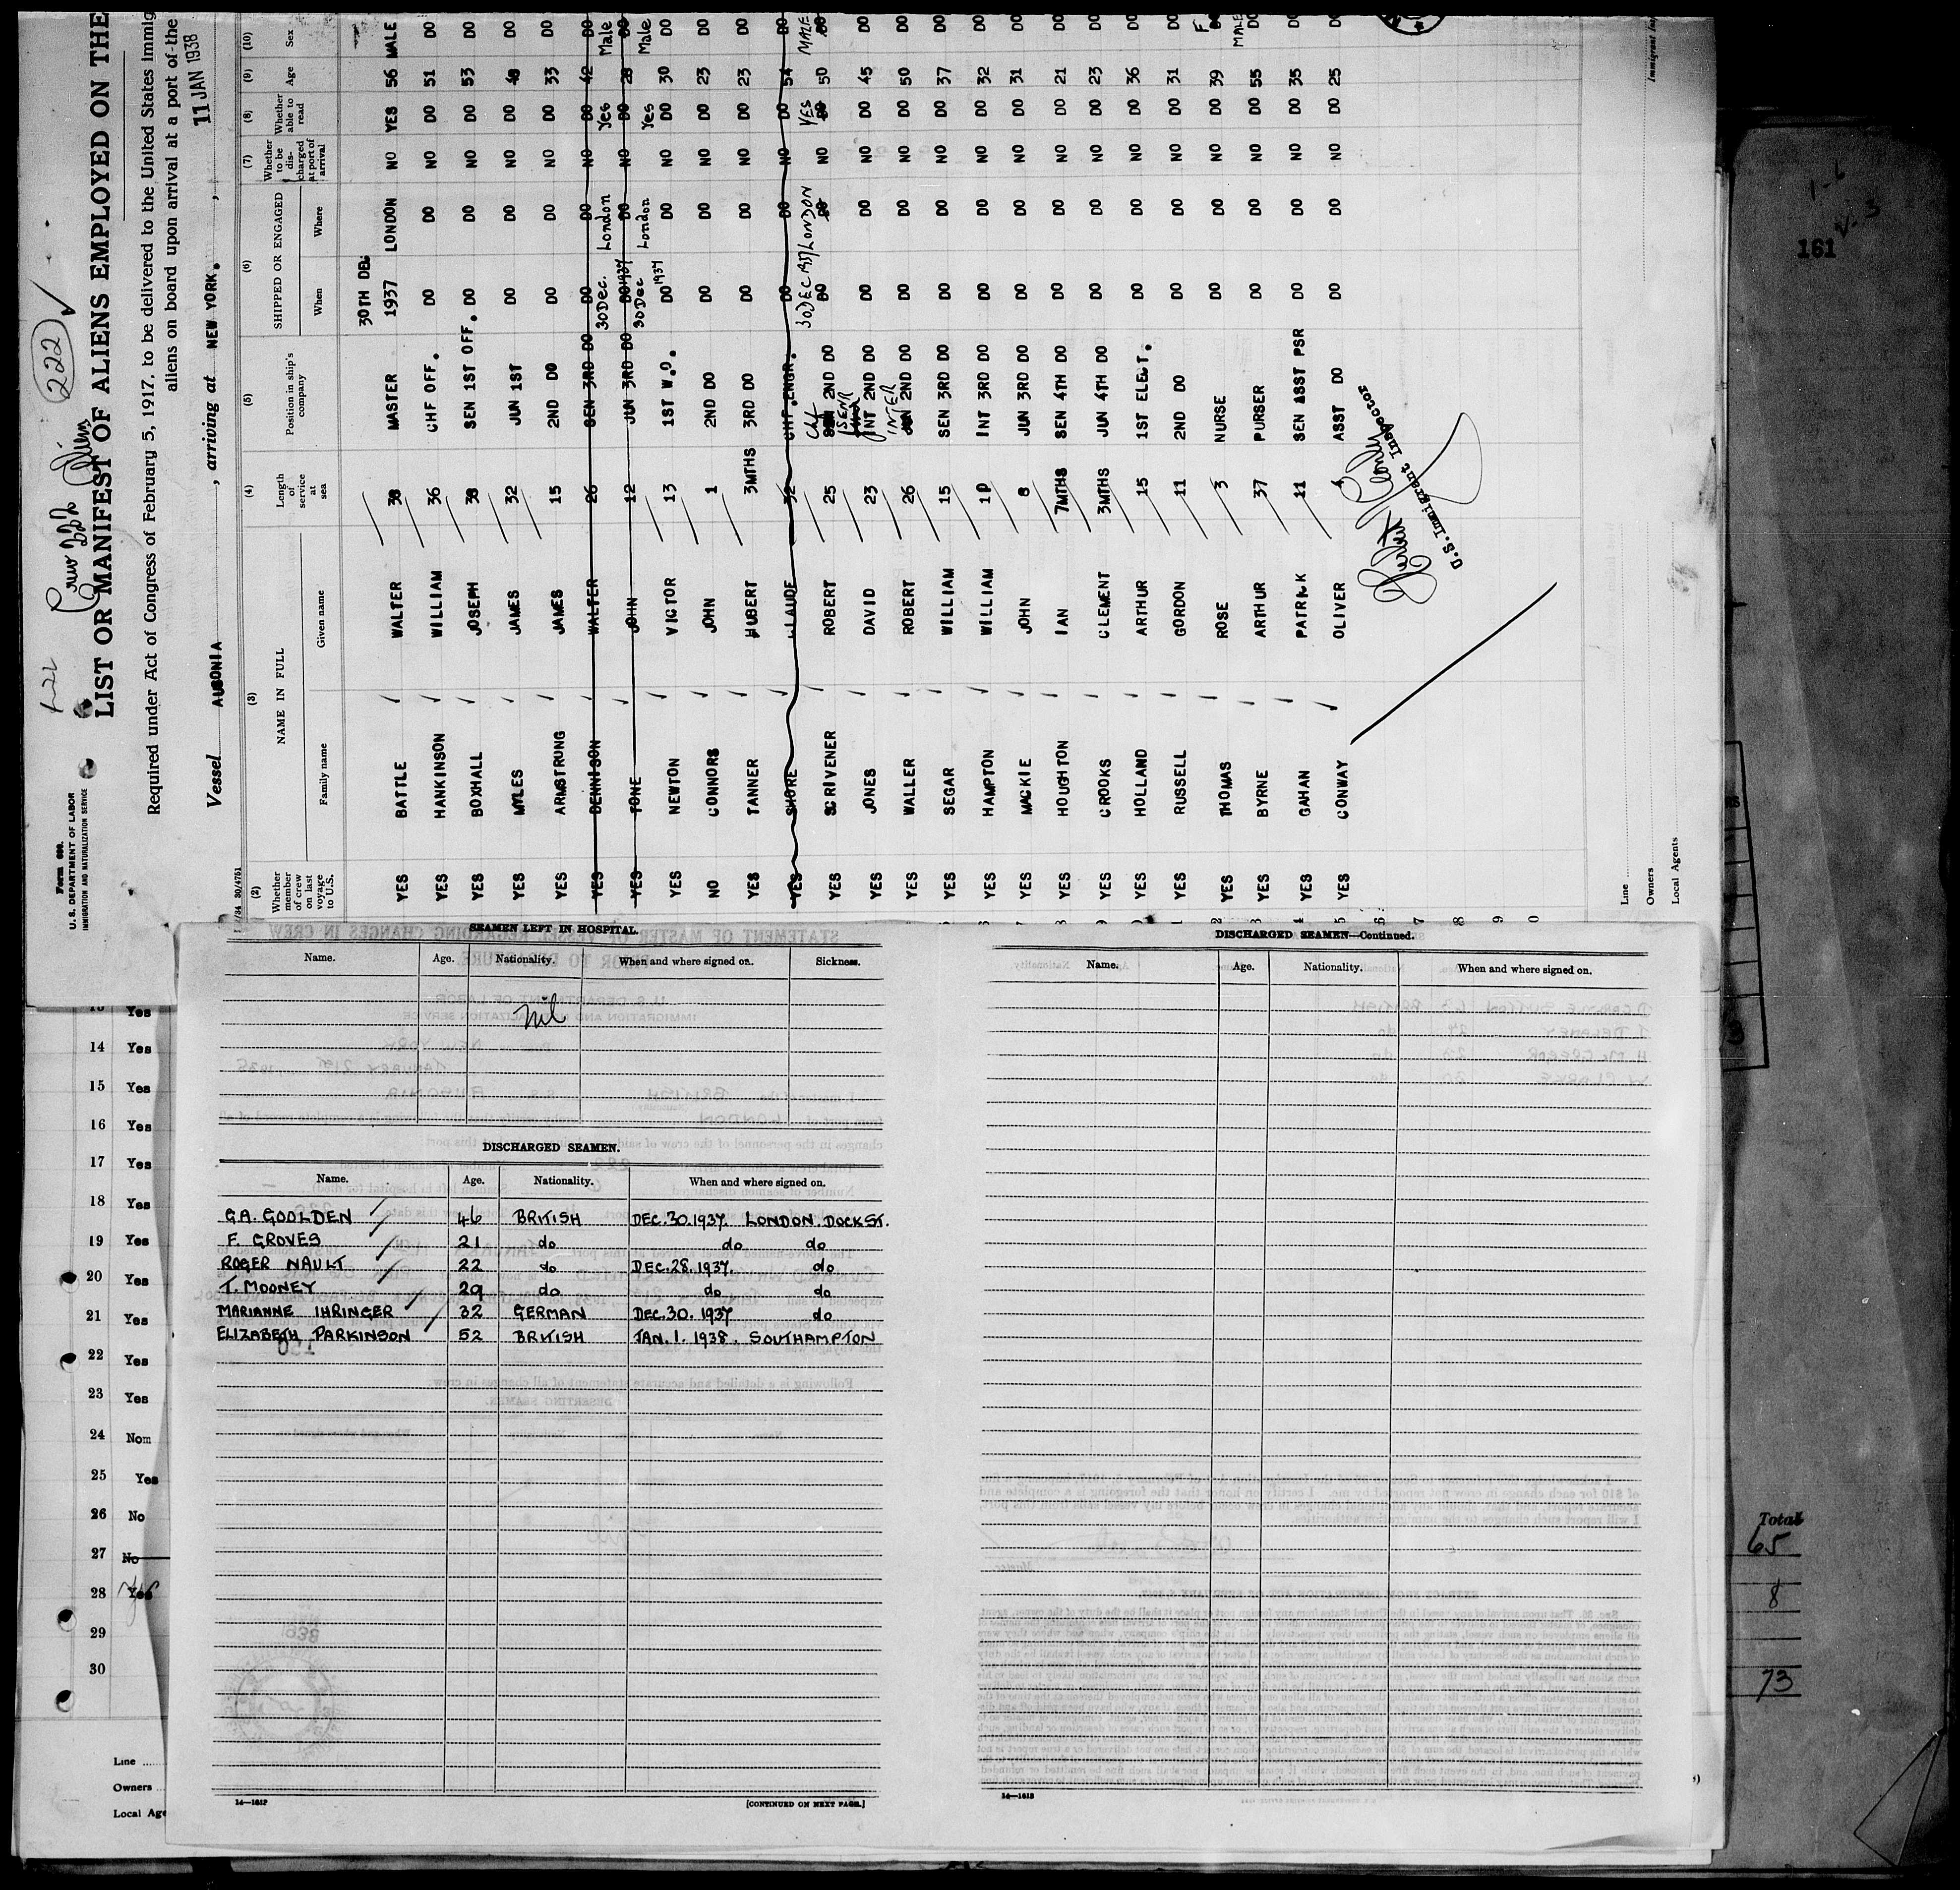 222 ✓
Crew 222 Aliens
Form 680.
U. S. DEPARTMENT OF LABOR
IMMIGRATION AND NATURALIZATION SERVICE
LIST OR MANIFEST OF ALIENS EMPLOYED ON THE
Required under Act of Congress of February 5, 1917, to be delivered to the United States immig
aliens on board upon arrival at a port of the
Vessel AUSONIA , arriving at NEW YORK. , 11 JAN 1938
(2) (3) (4) (5) (6) (7) (8) (9) (10)
Whether member of crew on last voyage to U.S. NAME IN FULL Family name Given name Length of service at sea Position in ship's company SHIPPED OR ENGAGED When Where Whether to be discharged at port of arrival Whether able to read Age Sex
YES BATTLE WALTER 38 MASTER 30TH DEC 1937 LONDON NO YES 56 MALE
YES HANKINSON WILLIAM 36 CHF OFF. DO DO NO DO 51 DO
YES BOXHALL JOSEPH 38 SEN 1ST OFF. DO DO NO DO 53 DO
YES MYLES JAMES 32 JUN 1ST DO DO NO DO 48 DO
YES ARMSTRUNG JAMES 15 2ND DO DO DO NO DO 33 DO
YES DENNISON WALTER 26 SEN 3RD DO DO DO NO DO 42 DO
30 Dec. London Yes Male
YES TONE JOHN 12 JUN 3RD DO DO 1937 DO NO DO 28 DO
30 Dec 1937 London Yes Male
YES NEWTON VICTOR 13 1ST W.O. DO DO NO DO 30 DO
NO CONNORS JOHN 1 2ND DO DO DO NO DO 23 DO
YES TANNER HUBERT 3MTHS 3RD DO DO DO NO DO 23 DO
YES SHORE CLAUDE 32 CHF.ENGR. DO DO NO DO 54 DO
30 DEC 1937 LONDON YES MALE
YES SCRIVENER ROBERT 25 Chf 2ND DO DO DO NO DO 50 DO
YES JONES DAVID 23 SENR INT 2ND DO DO DO NO DO 45 DO
YES WALLER ROBERT 26 INTER JUN 2ND DO DO DO NO DO 50 DO
YES SEGAR WILLIAM 15 SEN 3RD DO DO DO NO DO 37 DO
YES HAMPTON WILLIAM 10 INT 3RD DO DO DO NO DO 32 DO
YES MACKIE JOHN 8 JUN 3RD DO DO DO NO DO 31 DO
YES HOUGHTON IAN 7MTHS SEN 4TH DO DO DO NO DO 21 DO
YES CROOKS CLEMENT 3MTHS JUN 4TH DO DO DO NO DO 23 DO
YES HOLLAND ARTHUR 15 1ST ELECT. DO DO NO DO 36 DO
YES RUSSELL GORDON 11 2ND DO DO DO NO DO 31 DO
YES THOMAS ROSE 3 NURSE DO DO NO DO 39 F
YES BYRNE ARTHUR 37 PURSER DO DO NO DO 55 MALE DO
YES GAHAN PATRICK 11 SEN ASST PSR DO DO NO DO 35 DO
YES CONWAY OLIVER 4 ASST DO DO DO NO DO 25 DO
U.S. Immigrant Inspector
Line
Owners
Local Agents
Immigrant
SEAMEN LEFT IN HOSPITAL.
Name. Age. Nationality. When and where signed on. Sickness.
Nil
DISCHARGED SEAMEN.
Name. Age. Nationality. When and where signed on.
G.A. GOOLDEN 46 BRITISH DEC. 30. 1937. LONDON. DOCK ST.
F. GROVES 21 do do do
ROGER NAULT 22 do DEC. 28. 1937. do
T. MOONEY 29 do do do
MARIANNE IHRINGER 32 GERMAN DEC. 30. 1937 do
ELIZABETH PARKINSON 52 BRITISH JAN. 1. 1938. SOUTHAMPTON
14—1613 [CONTINUED ON NEXT PAGE.]
DISCHARGED SEAMEN—Continued.
Name. Age. Nationality. When and where signed on.
14—1613
Yes
14 Yes
15 Yes
16 Yes
17 Yes
18 Yes
19 Yes
20 Yes
21 Yes
22 Yes
23 Yes
24 Nom
25 Yes
26 No
27 No
28 Yes
29
30
Line
Owners
Local Age
161
Total
65
8
73